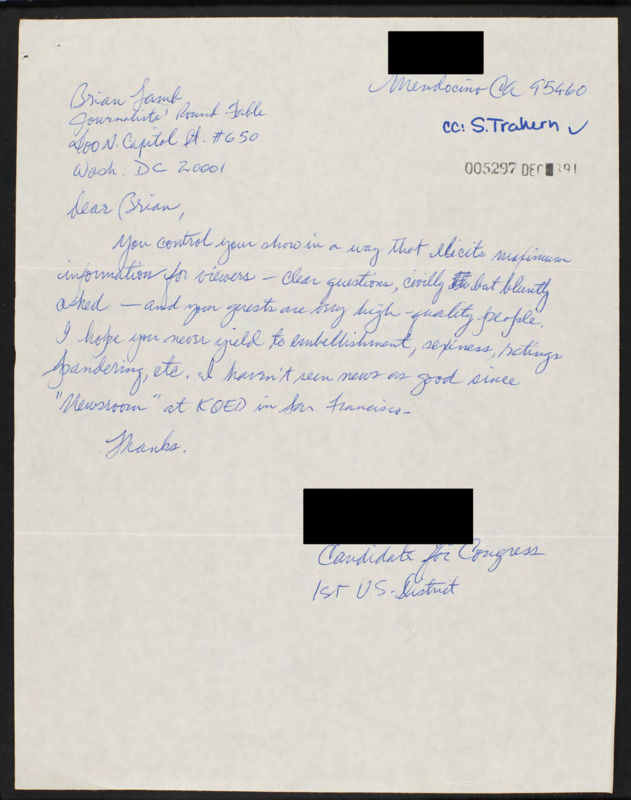 Mendocino Ca 95460
cc: S. Trahern ✓
005297 DEC 91
Brian Lamb
Journalists' Round Table
400 N. Capitol St. #650
Wash. DC 20001
Dear Brian,
You control your show in a way that elicits maximum
information for viewers — clear questions, civilly but bluntly
asked — and your guests are very high-quality people.
I hope you never yield to embellishment, sexiness, ratings
pandering, etc. I haven't seen news as good since
"Newsroom" at KQED in San Francisco.
Thanks.
Candidate for Congress
1st U.S. District